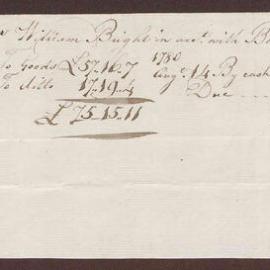 William Bright in acct. with B
To Goods £57..16..7 1780 Augt. 14 By cash
To ditto 17..19..4 Due
£75..15..11